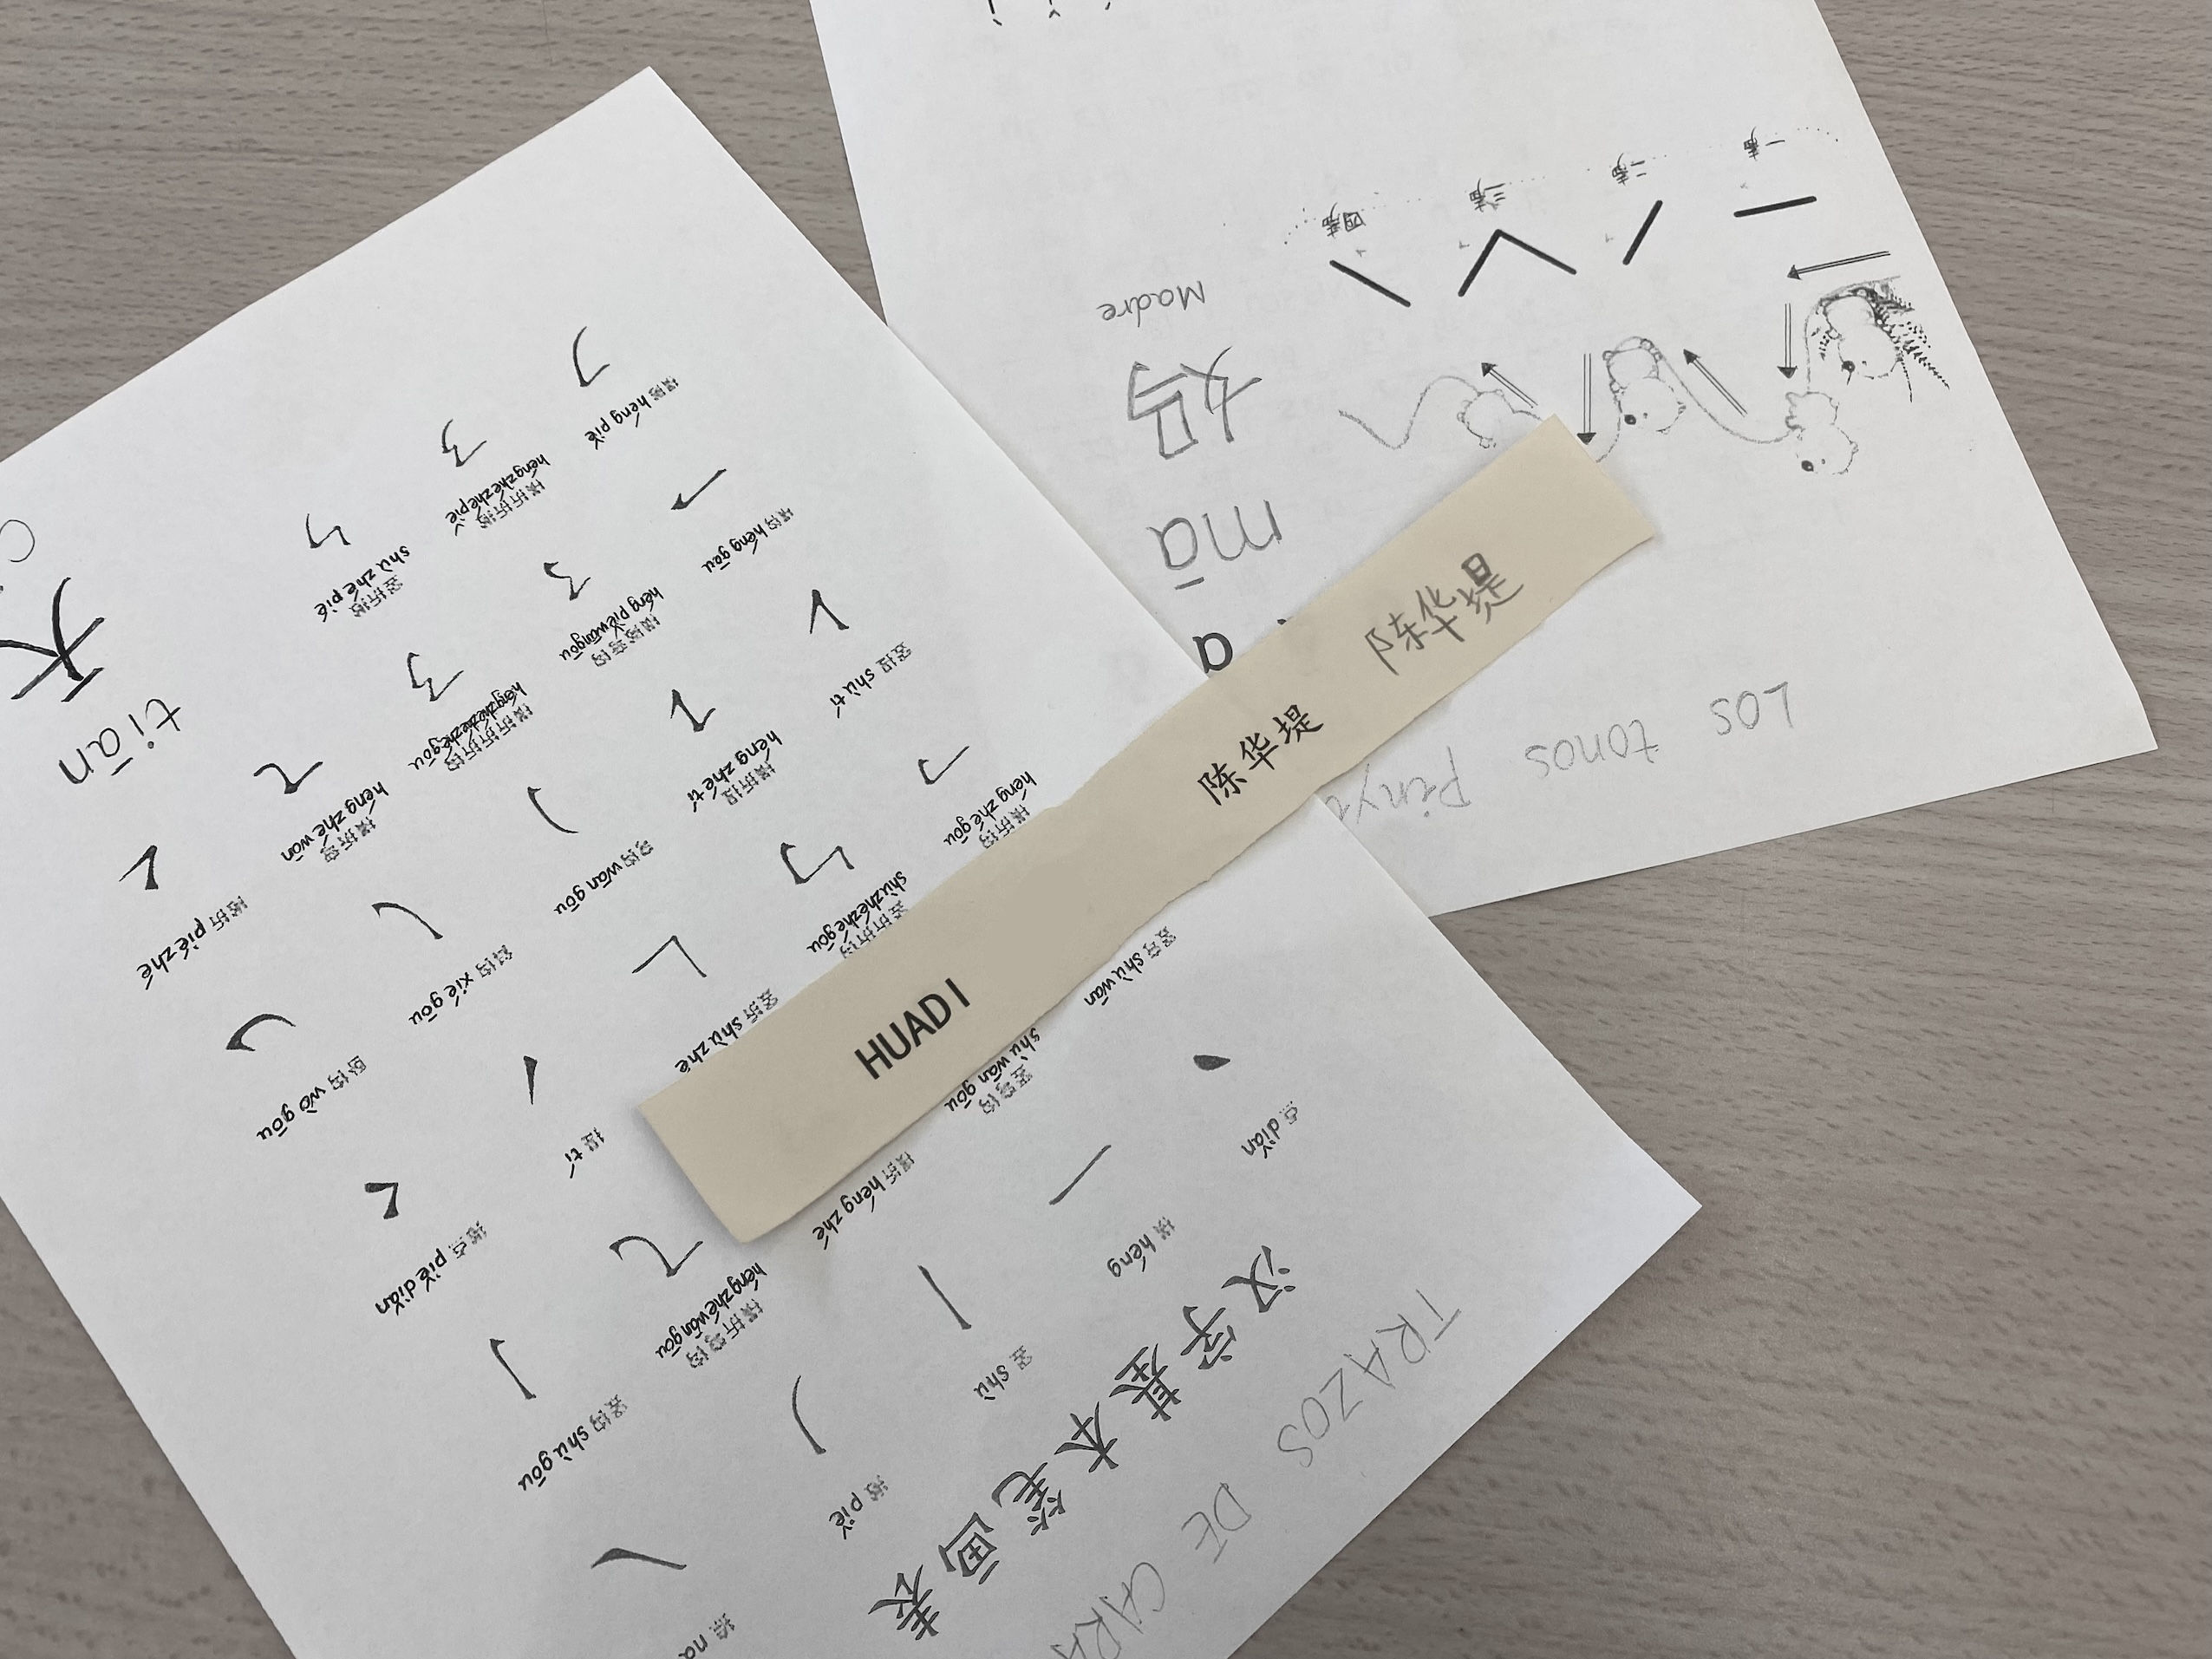 HUADI 陈华堤 陈华堤
TRAZOS DE CARA
汉字基本笔画表
点 diǎn
横 héng
竖 shù
撇 piě
捺 na
竖弯 shù wān
竖弯钩 shù wān gōu
横折 héng zhé
横折弯钩 héngzhéwāngōu
竖钩 shù gōu
横折钩 héng zhé gōu
竖折折钩 shùzhézhégōu
竖折 shù zhé
提 tí
撇点 piě diǎn
竖提 shù tí
横折提 héng zhé tí
弯钩 wān gōu
斜钩 xié gōu
卧钩 wò gōu
横钩 héng gōu
横撇弯钩 héng piěwāngōu
横折折折钩 héngzhézhézhégōu
横折弯 héng zhé wān
撇折 piě zhé
横撇 héng piě
横折折撇 héngzhézhépiě
竖折撇 shù zhé piě
tiān
天
Los tonos Piny
a
mā
妈
Madre
一声
二声
三声
四声